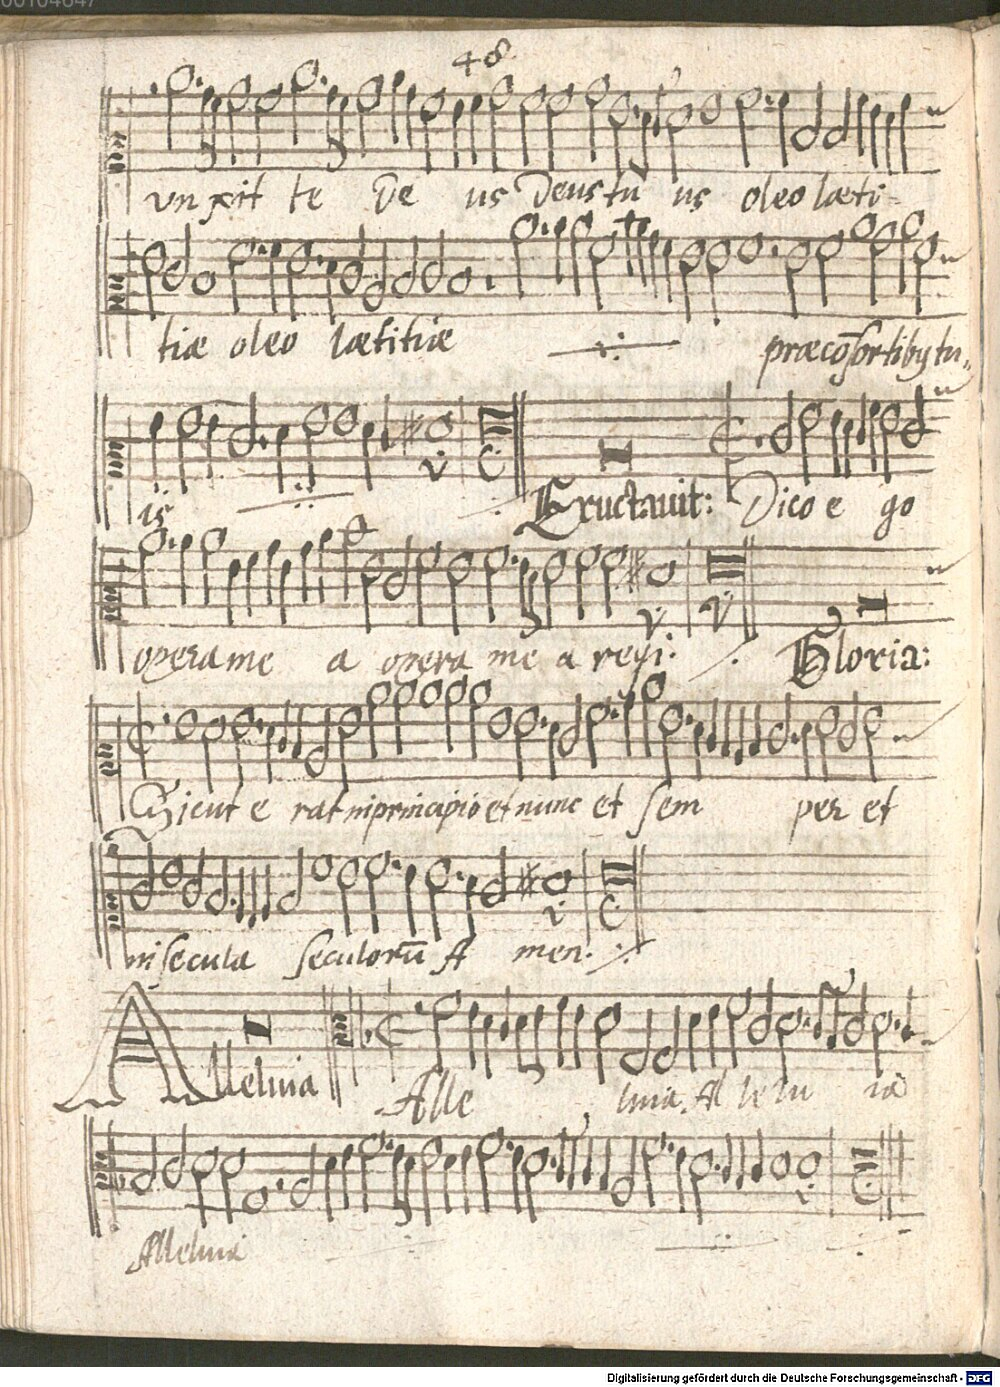 00104647
48
vnxit te De us Deus tu us oleo læti-
tiæ oleo lætitiæ præcõsortibꝰ tu„
is Eructauit: Dico e go
opera me a opera me a regi: Gloria:
Sicut e rat in principio et nunc et sem per et
in secula seculorũ A men.
Alleluia Alle luia Al le lu ia
Alleluia
Digitalisierung gefördert durch die Deutsche Forschungsgemeinschaft - DFG